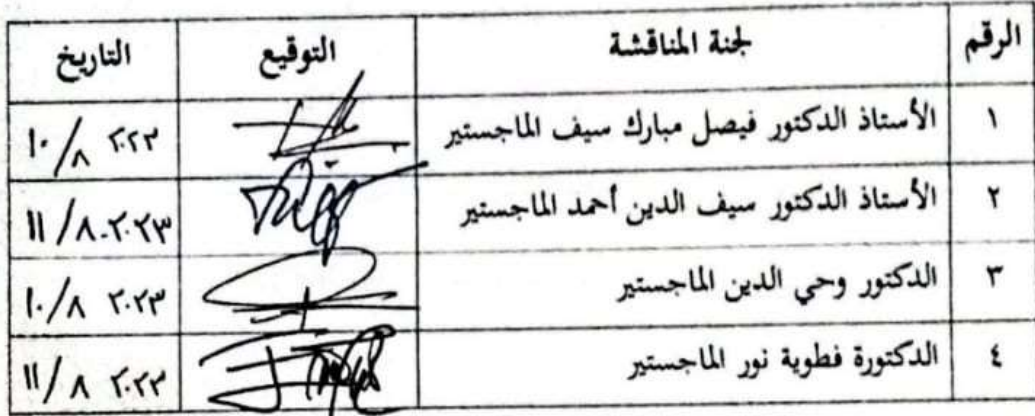 الرقم لجنة المناقشة التوقيع التاريخ
١ الأستاذ الدكتور فيصل مبارك سيف الماجستير ١٠/٨ ٢٠٢٣
٢ الأستاذ الدكتور سيف الدين أحمد الماجستير ١١/٨-٢٠٢٣
٣ الدكتور وحي الدين الماجستير ١٠/٨ ٢٠٢٣
٤ الدكتورة فطوية نور الماجستير ١١/٨ ٢٠٢٣